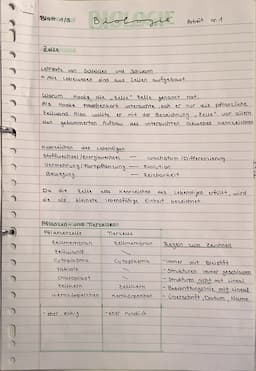 Blatt 1/3 Biologie Arbeit nr.1
BIOLOGIE
Zelle
Lehrsatz von Schleiden und Schwann
Alle Lebewesen sind aus Zellen aufgebaut.
Warum Hooke die "Zelle" Zelle genannt hat:
Als Hooke untersuchte sah er nur die pflanzliche
Zellwand. Also wollte er mit der Bezeichnung "Zelle" vor allem
den gekammerten Aufbau des untersuchten Gewebes kennzeichnen
Kennzeichen des Lebendigen
Stoffwechsel/Energiewechsel — Wachstum/Differenzierung
Vermehrung/Fortpflanzung — Evolution
Bewegung — Reizbarkeit
Da die Zelle alle Kennzeichen des Lebendigen erfüllt, wird
sie als kleinste lebensfähige Einheit bezeichnet
Pflanzen- und Tierzellen
Pflanzenzelle Tierzelle
Zellmembran Zellmembran Regeln vom Zeichnen
Zellwand \
Cytoplasma Cytoplasma - immer mit Bleistift
Vakuole \ - Strukturen immer geschlossen
Chloroplast \ - Strukturen nicht mit Lineal
Zellkern Zellkern - Beschriftungslinie mit Lineal
Kernkörperchen Kernkörperchen - Überschrift, Datum, Name
- eher eckig - eher rundlich